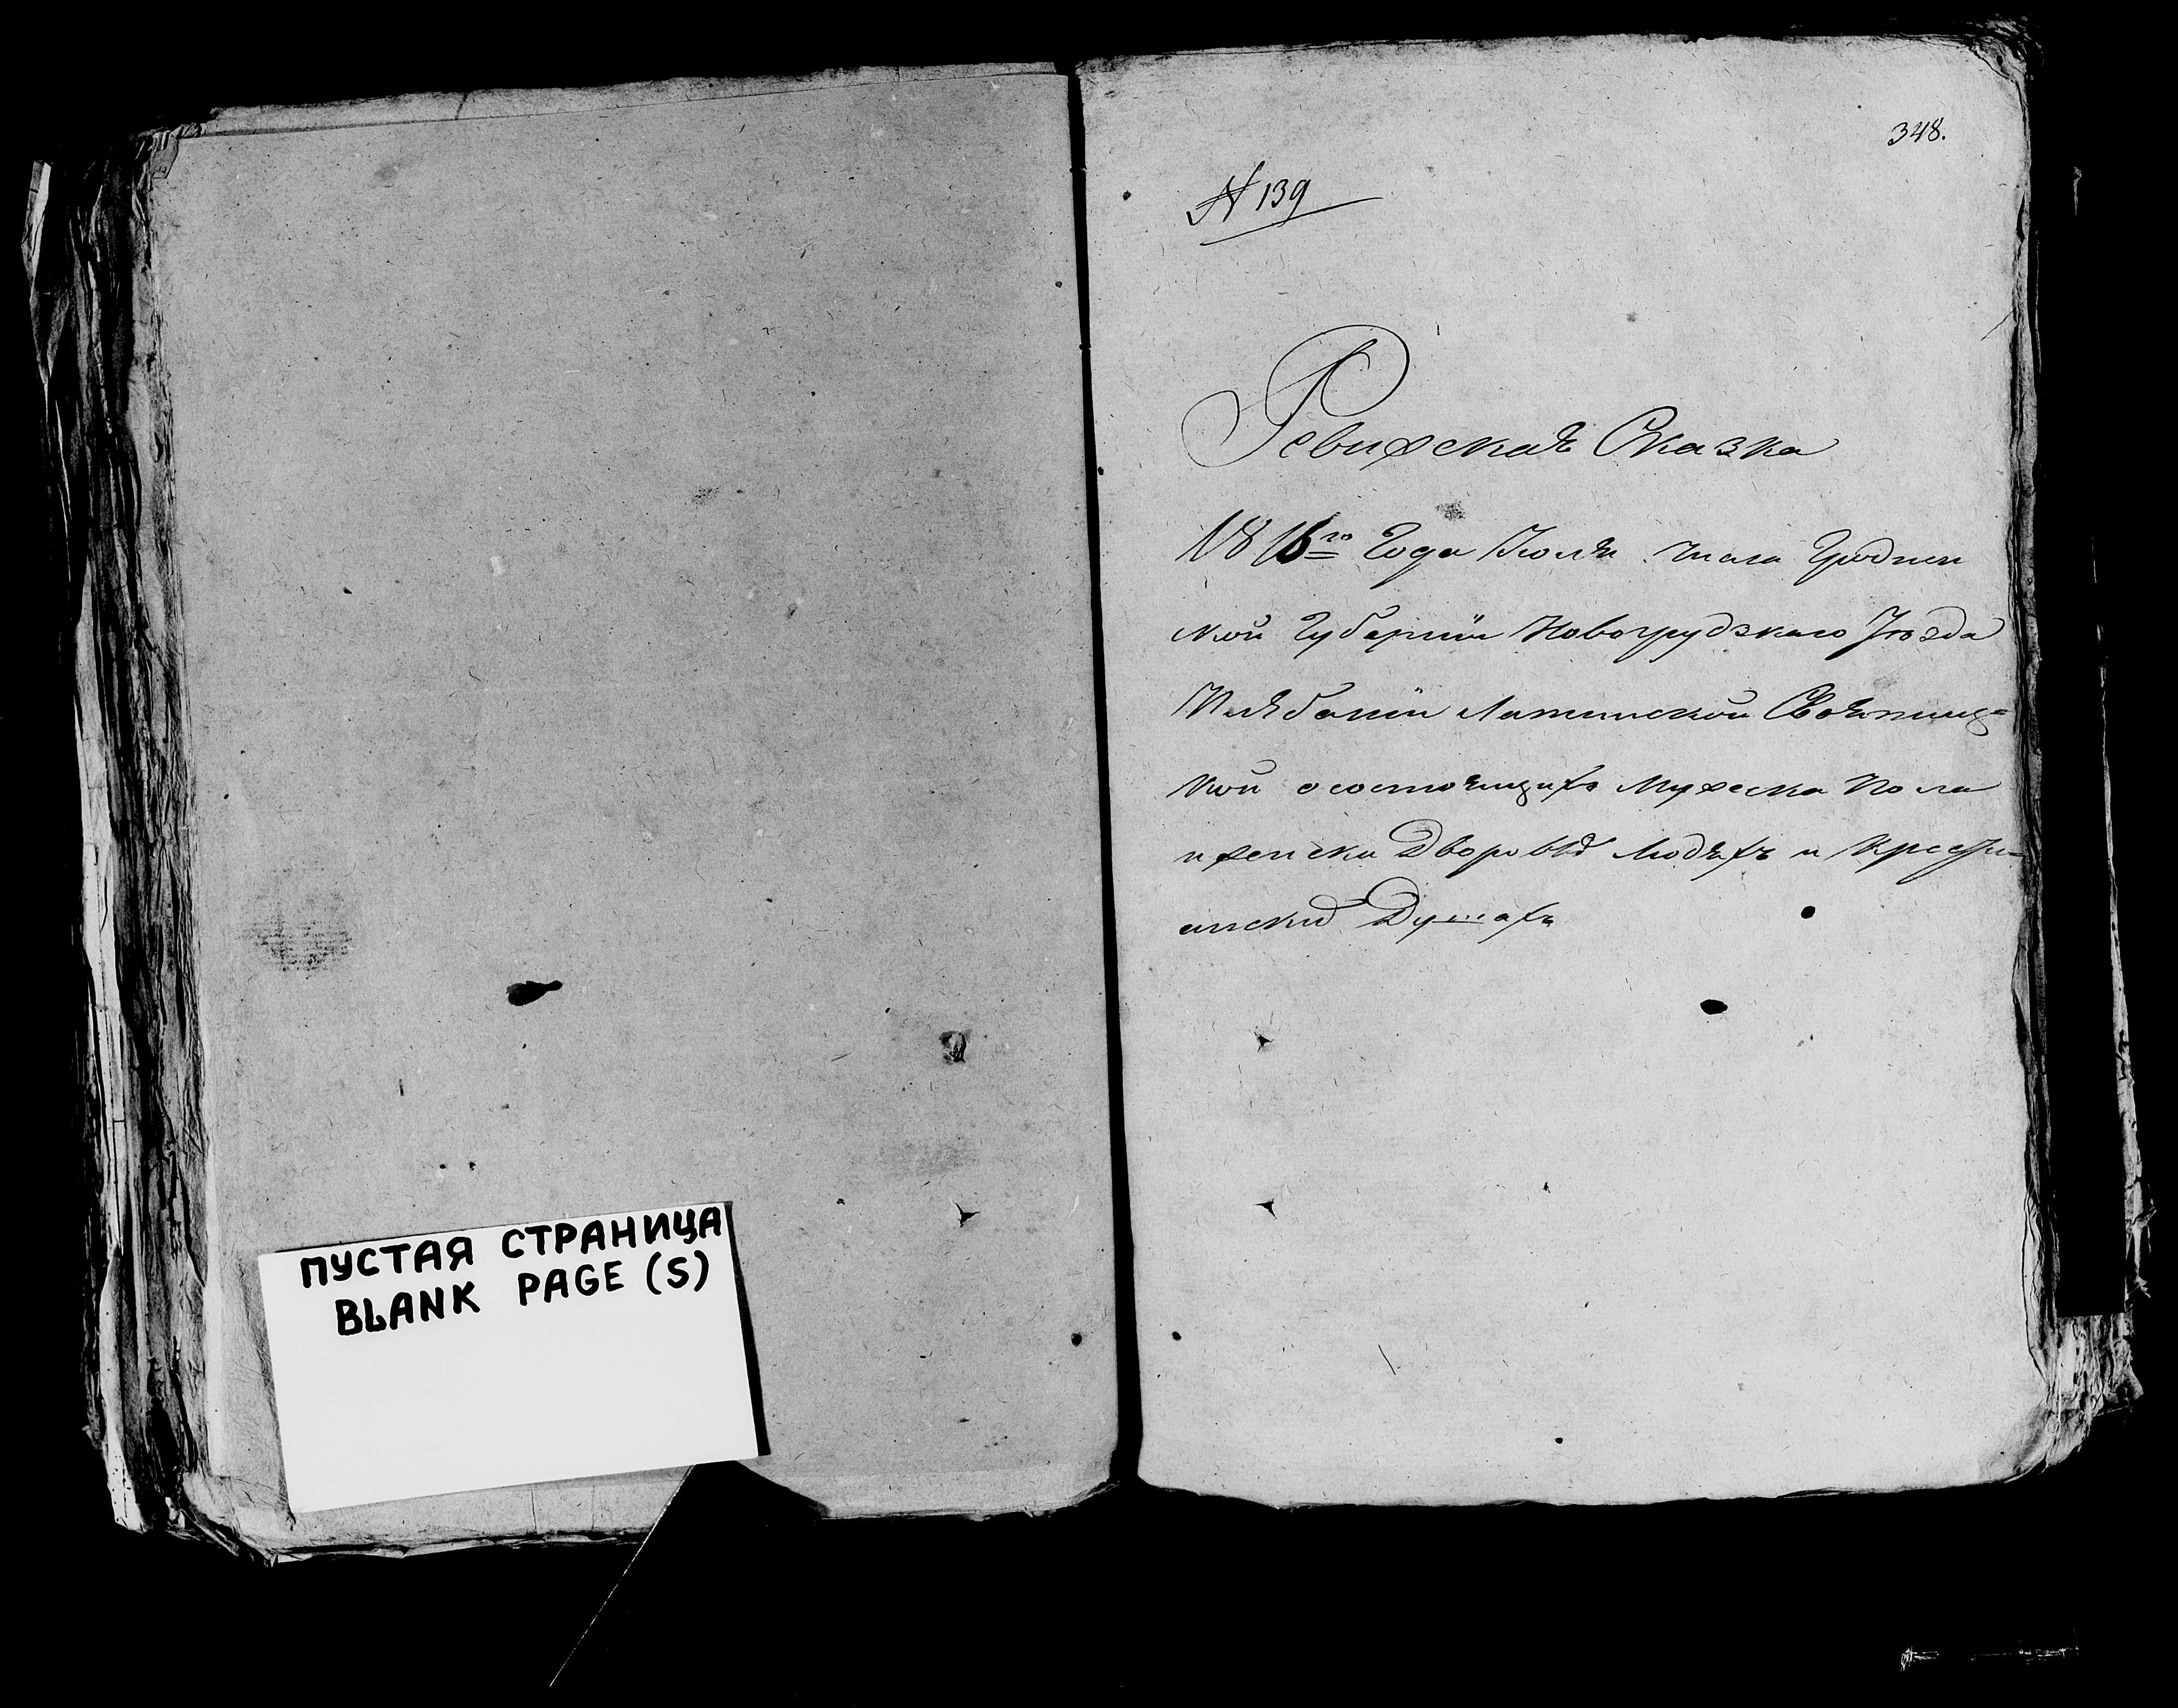 ПУСТАЯ СТРАНИЦА
BLANK PAGE (S)
348.
N 139
Ревижская Сказка
1816го Года Июля числа Гроднен
ской Губернїи Новогрудзкаго Уѣзда
Плябанїи Латинской Своятиц=
кой о состоящихъ Мужеска Пола
и женска Дворовых Людяхъ и Крестья=
нских Душахъ